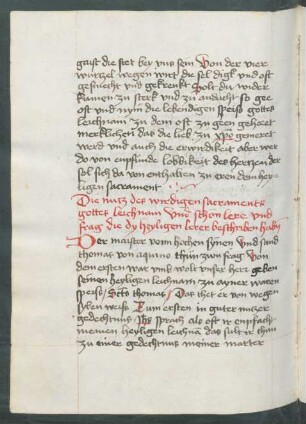 geist die stet bey vns sein Von der vier
wurczel wegen wirt die sel digk vnd oft
gesucht vnd gekrenkt Solt du wider
kumen zu sterk vnd zu andacht so gee
oft vnd nym die lebendigen speis gottes
leichnam zu dem oft zu geen gehoret
merklichen das die lieb zu xpo gemeret
werd vnd auch die erwirdikeit aber wer
do von enpfindt des herczen der
sel sich da von enthalten zu eren dem hey
ligen sacrament
Die nutz des wirdigen sacraments
gottes leichnam Vnd schon lere vnd
frag die dy heyligen lerer beschriben habn
Der maister vom hochen synen Vnd sand
thomas von aquino thun zum frag Von
dem ersten war vmb wolt vnser herr geben
seinen heyligen leichnam zu ayner waren
speis Scto thomas Das thet er von wegen
Zum ersten in guter
gedechtnus Ihs sprach als oft ir enpfacht
meinen heyligen leichnam das sult ir thun
zu einer gedechtnus meiner marter